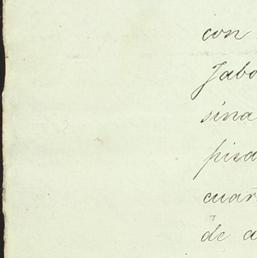 con
Jabo
sina
pisa
cuar
de a